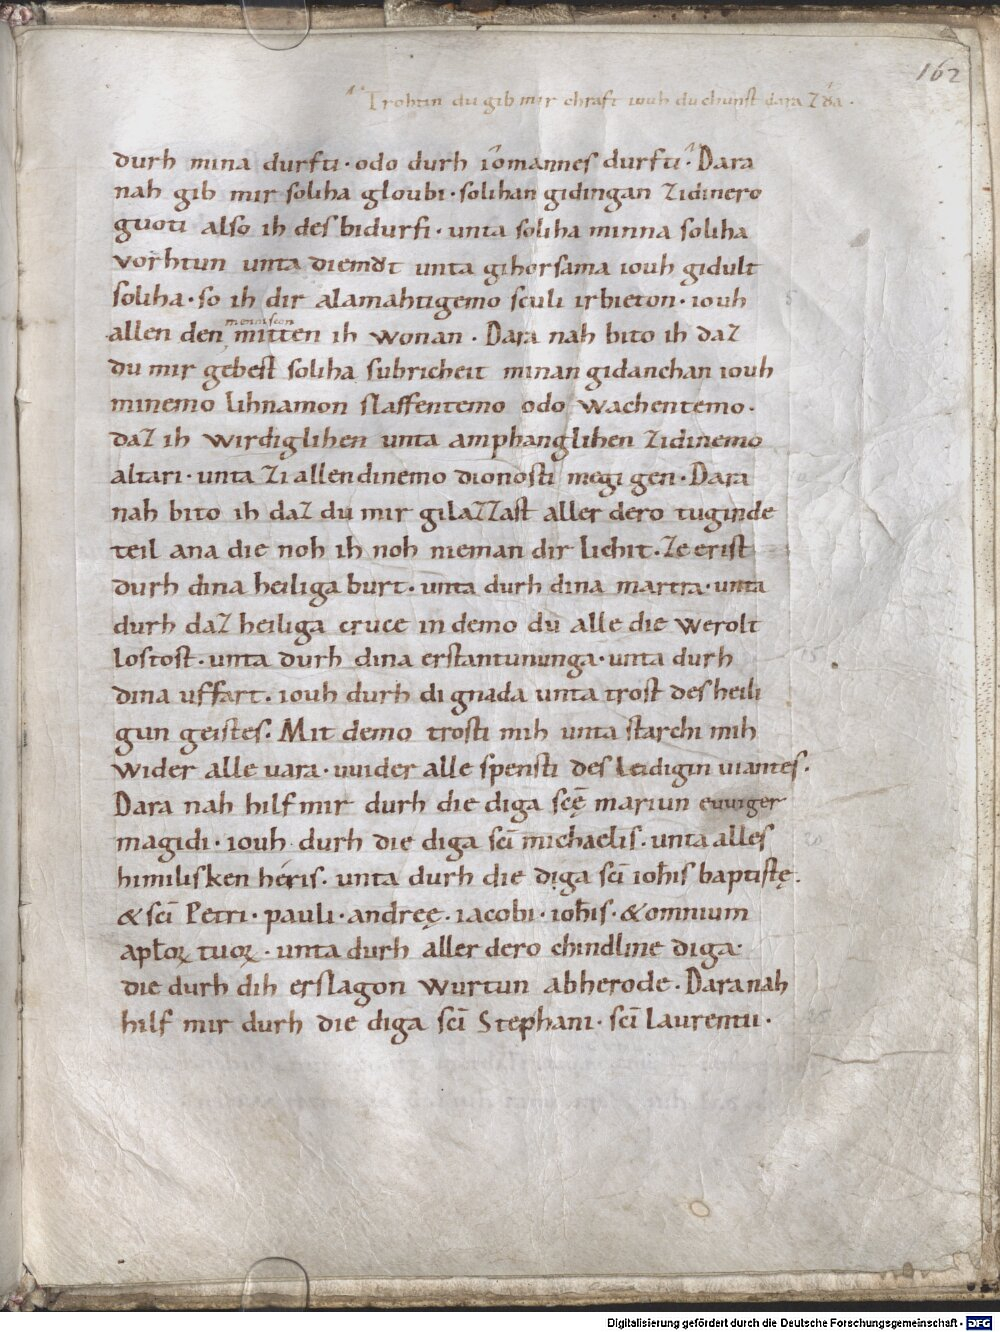 162
Trohtin du gib mir chraft iouh du chunst dara
durh mina durfti · odo durh iomannes durfti · Dara
nah gib mir soliha gloubi · solihan gidingan zidinero
guoti also ih des bidurfi · unta soliha minna soliha
vorhtun unta diemůt unta gihorsama iouh gidult
soliha · so ih dir alamahtigemo sculi irbieton · iouh
menniscon
allen den mitten ih wonan · Dara nah bito ih daz
du mir gebest soliha subricheit minan gidanchan iouh
minemo lihnamon slaffentemo odo wachentemo ·
daz ih wirdiglihen unta amphanglihen zidinemo
altari · unta zi allen dinemo dionosti megi gen · Dara
nah bito ih daz du mir gilazzast aller dero tuginde
teil ana die noh ih noh nieman dir lichit · Ze erist
durh dina heiliga burt · unta durh dina martra · unta
durh daz heiliga cruce in demo du alle die werolt
lostost · unta durh dina erstantununga · unta durh
dina uffart · iouh durh di gnada unta trost des heili
gun geistes · Mit demo trosti mih unta starchi mih
wider alle uara · uuider alle spensti des leidigin uiantes ·
Dara nah hilf mir durh die diga scę mariun euuiger
magidi · iouh durh die diga sc̄i michaelis · unta alles
himilisken heris · unta durh die diga sc̄i ioh̄is baptistę ·
& sc̄i Petri · pauli · andreę · iacobi · ioh̄is · & omnium
apl̄oꝝ tuoꝝ · unta durh aller dero chindline diga ·
die durh dih erslagon wurtun abherode · Dara nah
hilf mir durh die diga sc̄i Stephani · sc̄i Laurentii ·
Digitalisierung gefördert durch die Deutsche Forschungsgemeinschaft - DFG